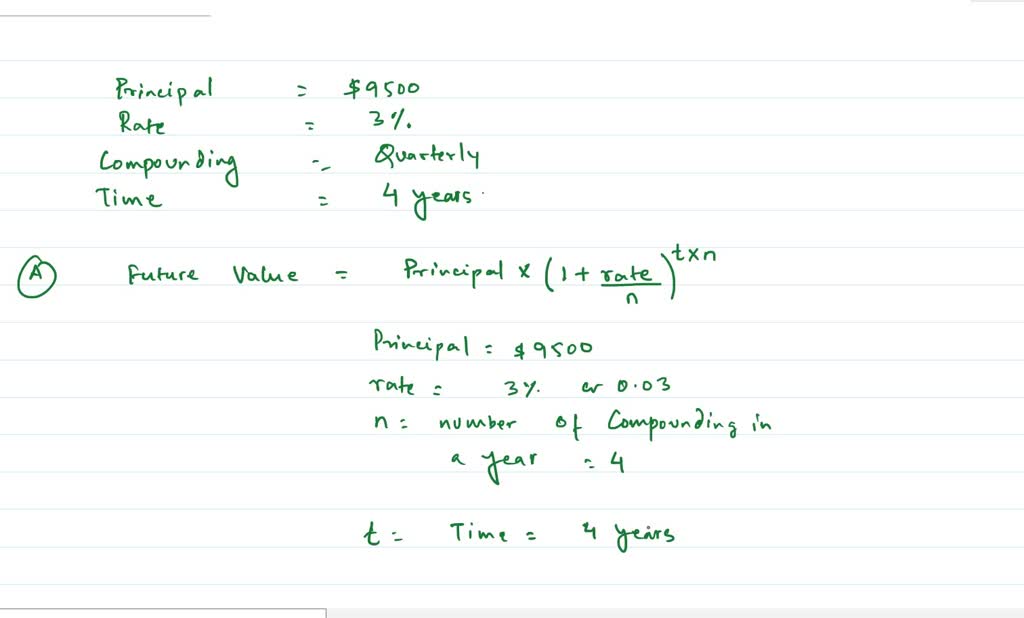 Principal = $9500
Rate = 3%.
Compounding = Quarterly
Time = 4 years.
A Future Value = Principal x (1 + rate/n)^txn
Principal = $9500
rate = 3%. or 0.03
n = number of Compounding in
a year = 4
t = Time = 4 years